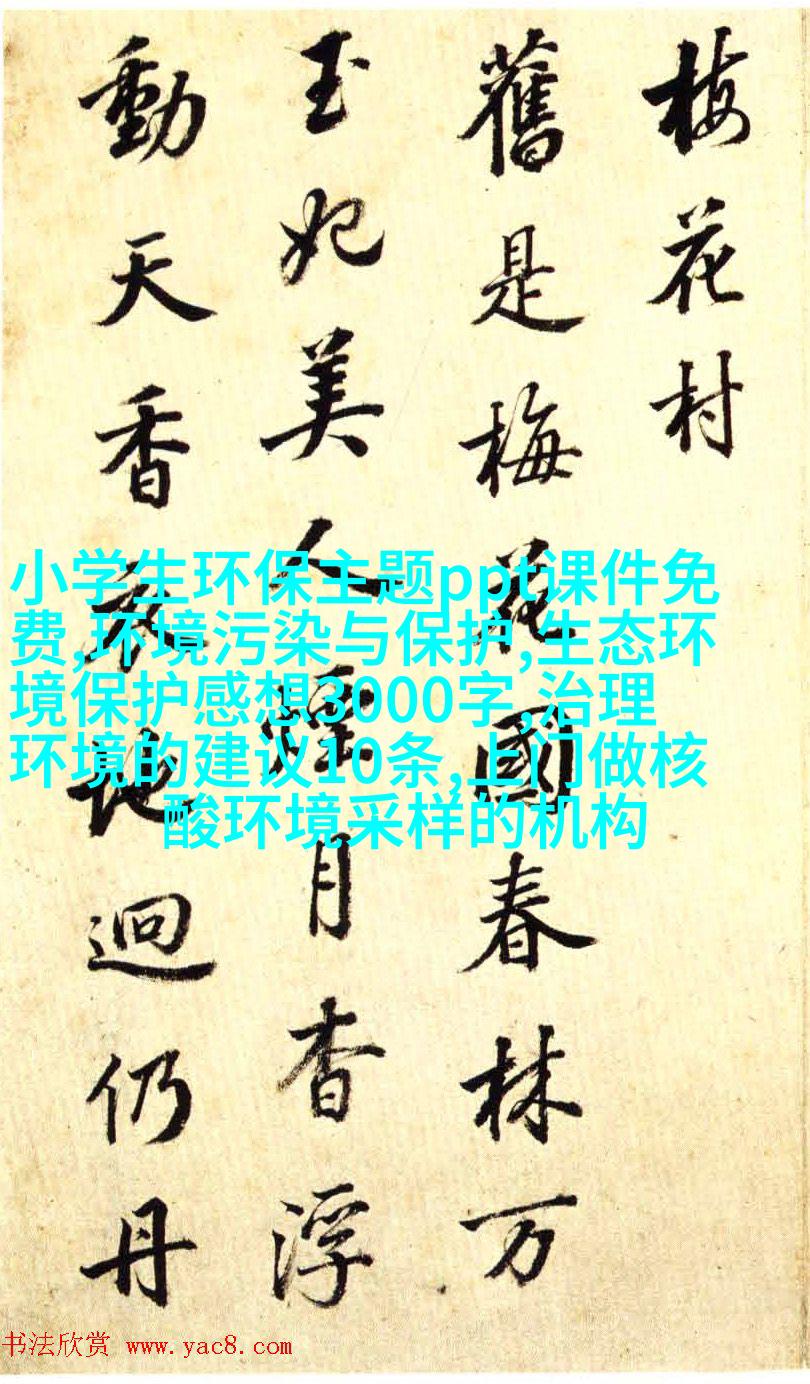 梅花村
舊是梅花國春林万
玉妃美人烟月杳浮
動天香衰地迥仍丹
小学生环保主题ppt课件免
费,环境污染与保护,生态环
境保护感想3000字,治理
环境的建议10条,上门做核
酸环境采样的机构
书法欣赏 www.yac8.com